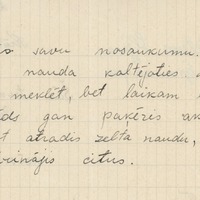 savu nosaukumu.
nauda kaltējoties
meklēt, bet laikam
gan paķēris
atradis zelta naudu,
citus.